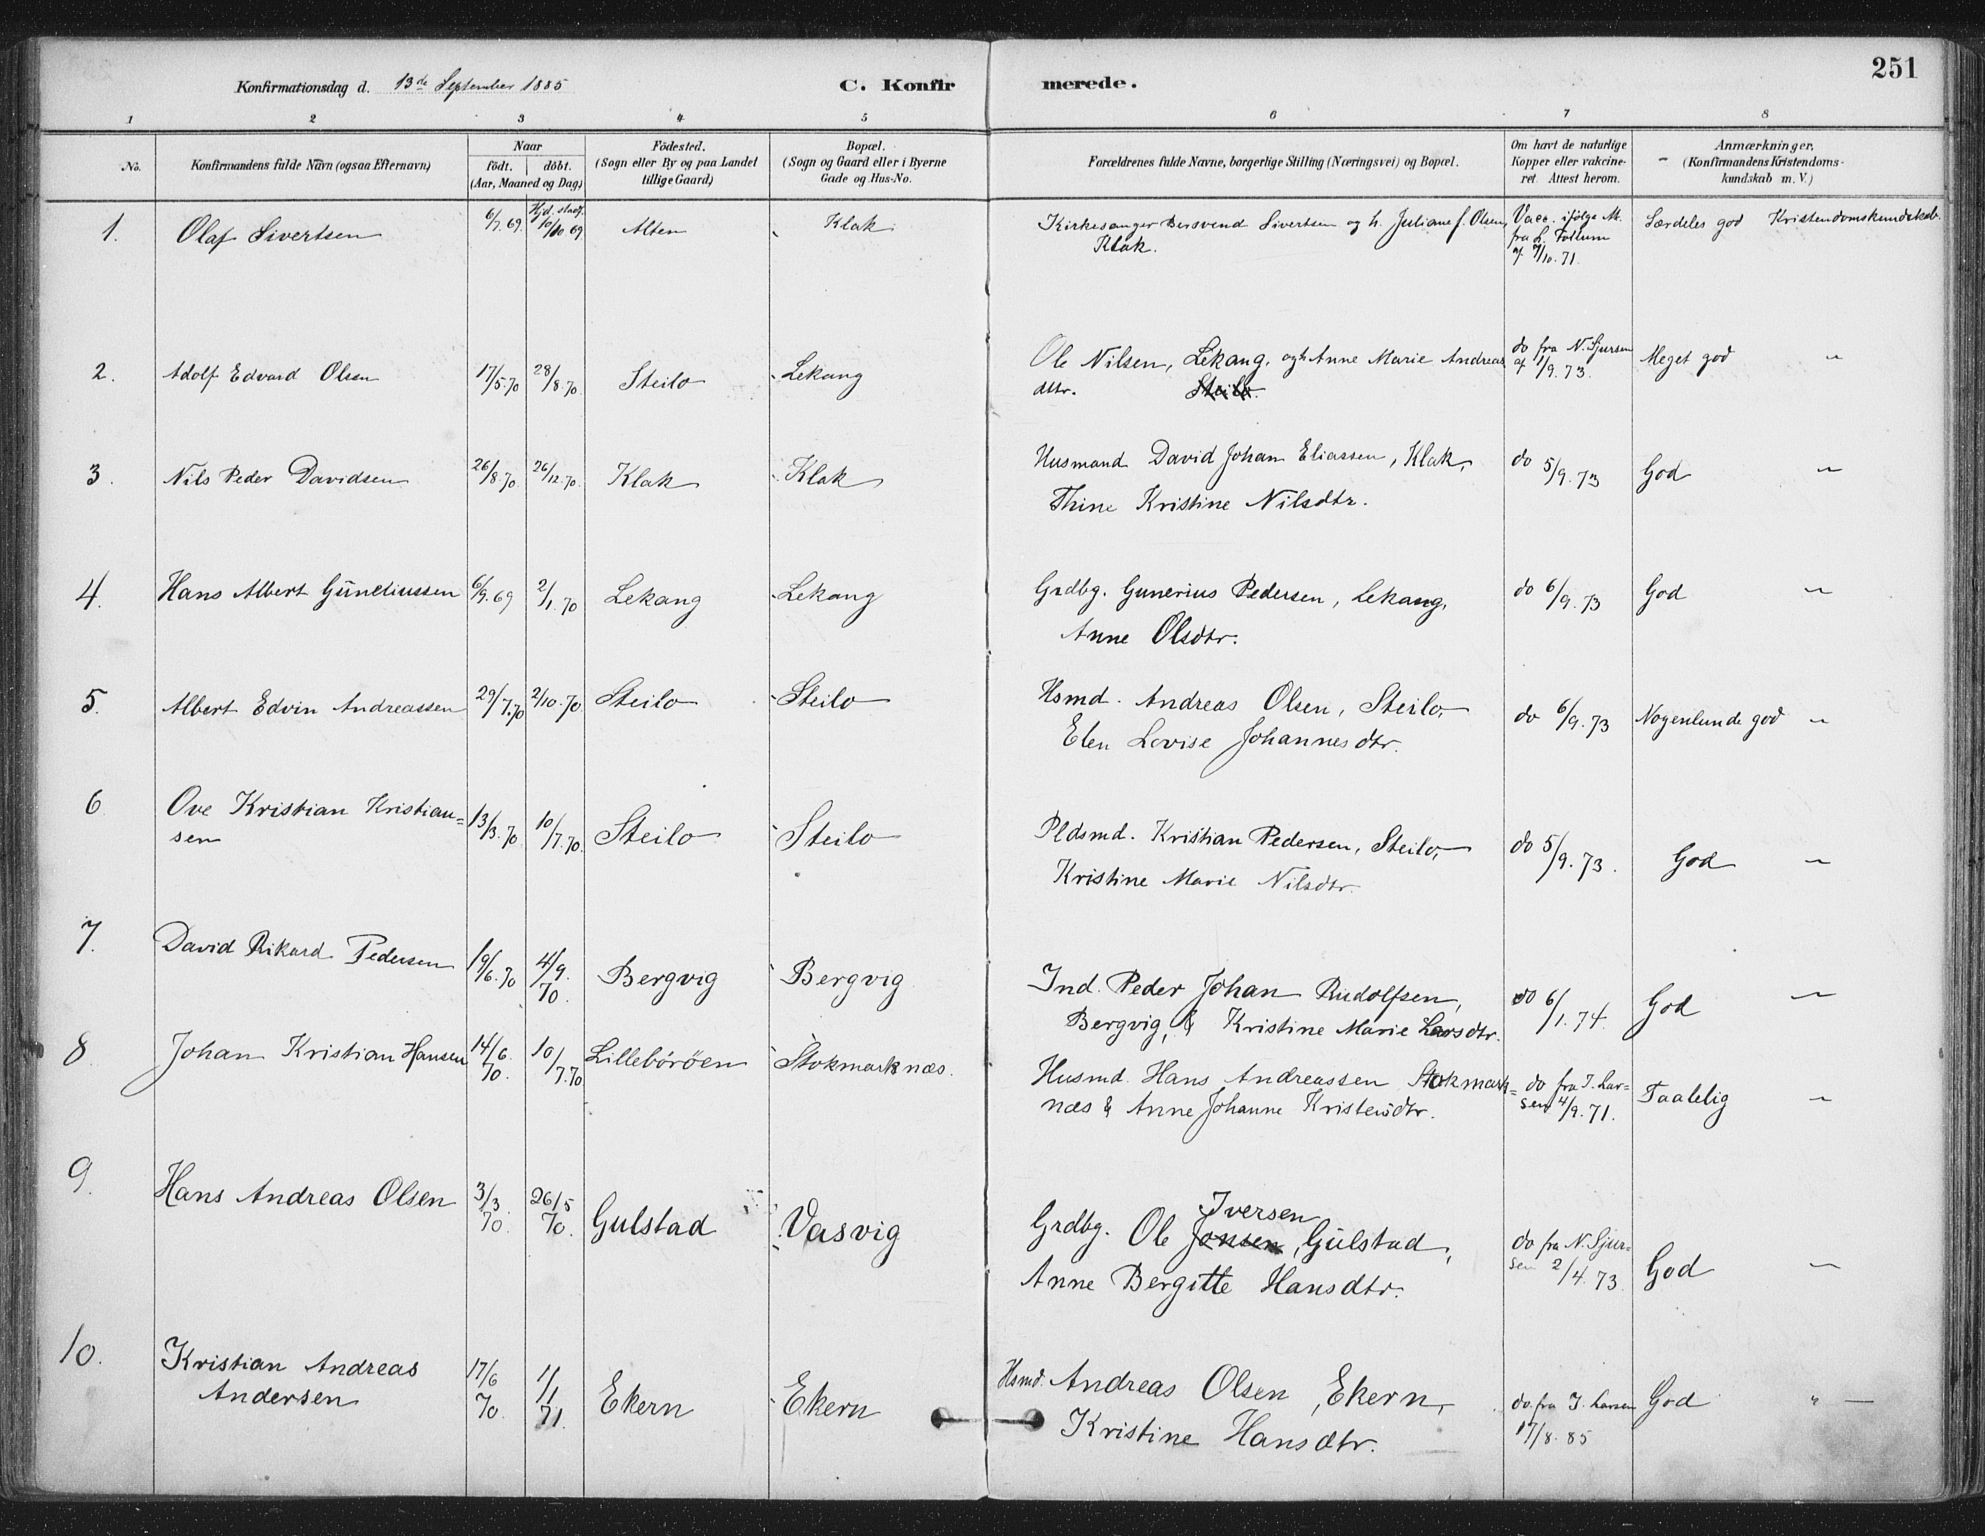 251
Konfirmationsdag d. 13de September 1885 C. Konfirmerede.
1 2 3 4 5 6 7 8
No. Konfirmandens fulde Navn (ogsaa Efternavn) Naar født. døbt. (Aar, Maaned og Dag) Födested. (Sogn eller By og paa Landet tillige Gaard) Bopæl. (Sogn og Gaard eller i Byerne Gade og Hus-No. Forældrenes fulde Navne, borgerlige Stilling (Næringsvei) og Bopæl. Om havt de naturlige Kopper eller vakcineret. Attest herom. Anmærkninger, (Konfirmandens Kristendomskundskab m. V.)
1. Olaf Sivertsen 6/7.69. Hjd. 10/10 69 Alten Klak Kirkesanger Bersvend Sivertsen og h. Juliane f. Olsen, Vacc. ifølge At. Særdeles god Kristendomskundskab.
Klak. fra L. Follum
af 7/10.71.
2. Adolf Edvard Olsen 17/5.70 28/8.70. Steilo Lekang Ole Nilsen, Lekang, og h. Anne Marie Andreas do fra N. Sjursen Meget god "
dttr. Steilo. af 1/9.73.
3. Nils Peder Davidsen 26/8.70 26/12.70. Klak Klak Husmand David Johan Eliassen, Klak, do 5/9.73 God "
Thine Kristine Nilsdtr.
4. Hans Albert Guneliussen 6/9.69 2/1.70 Lekang Lekang Grdbg. Gunerius Pedersen, Lekang, do 6/9.73 God "
Anne Olsdtr.
5. Albert Edvin Andreassen 29/7.70 2/10.70 Steilo Steilo Hsmd. Andreas Olsen, Steilo, do 6/9.73 Nogenlunde god "
Elen Lovise Johannesdtr.
6 Ove Kristian Kristian= 13/3.70 10/7.70. Steilo Steilo Pldsmd. Kristian Pedersen, Steilo, do 5/9.73. God "
sen Kristine Marie Nilsdtr.
7. David Rikard Pedersen 19/6.70 4/9.70. Bergvig Bergvig Ind. Peder Johan Rudolfsen, do 6/1.74. God "
Bergvig, & Kristine Marie Larsdtr.
8. Johan Kristian Hansen 14/6.70. 10/7.70 Lilleböröen Stokmarknæs. Husmd. Hans Andreassen Stokmark= do fra I. Lar= Taalelig "
næs & Anne Johanne Kristensdtr. sen 4/9.71.
9. Hans Andreas Olsen 3/3.70. 26/5 70. Gulstad Vasvig Grdbg. Ole Jonsen Iversen, Gulstad, do fra N. Sjur= God "
Anne Bergitte Hansdtr. sen 2/4.73
10. Kristian Andreas 17/6 70. 1/1 71. Ekern Ekern Hsmd. Andreas Olsen, Ekern, do. fra I. Larsen God " —
Andersen Kristine Hansdtr. 17/8.85